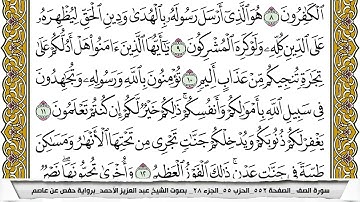 ٱلْكَٰفِرُونَ ٨ هُوَ ٱلَّذِىٓ أَرْسَلَ رَسُولَهُۥ بِٱلْهُدَىٰ وَدِينِ ٱلْحَقِّ لِيُظْهِرَهُۥ
عَلَى ٱلدِّينِ كُلِّهِۦ وَلَوْ كَرِهَ ٱلْمُشْرِكُونَ ٩ يَٰٓأَيُّهَا ٱلَّذِينَ ءَامَنُوا۟ هَلْ أَدُلُّكُمْ عَلَىٰ
تِجَٰرَةٍ تُنجِيكُم مِّنْ عَذَابٍ أَلِيمٍ ١٠ تُؤْمِنُونَ بِٱللَّهِ وَرَسُولِهِۦ وَتُجَٰهِدُونَ
فِى سَبِيلِ ٱللَّهِ بِأَمْوَٰلِكُمْ وَأَنفُسِكُمْ ۚ ذَٰلِكُمْ خَيْرٌ لَّكُمْ إِن كُنتُمْ تَعْلَمُونَ ١١
يَغْفِرْ لَكُمْ ذُنُوبَكُمْ وَيُدْخِلْكُمْ جَنَّٰتٍ تَجْرِى مِن تَحْتِهَا ٱلْأَنْهَٰرُ وَمَسَٰكِنَ
طَيِّبَةً فِى جَنَّٰتِ عَدْنٍ ۚ ذَٰلِكَ ٱلْفَوْزُ ٱلْعَظِيمُ ١٢ وَأُخْرَىٰ تُحِبُّونَهَا ۖ نَصْرٌ
سورة الصف _ الصفحة ٥٥٢_ الحزب ٥٥_ الجزء ٢٨ _ بصوت الشيخ عبد العزيز الأحمد_ برواية حفص عن عاصم